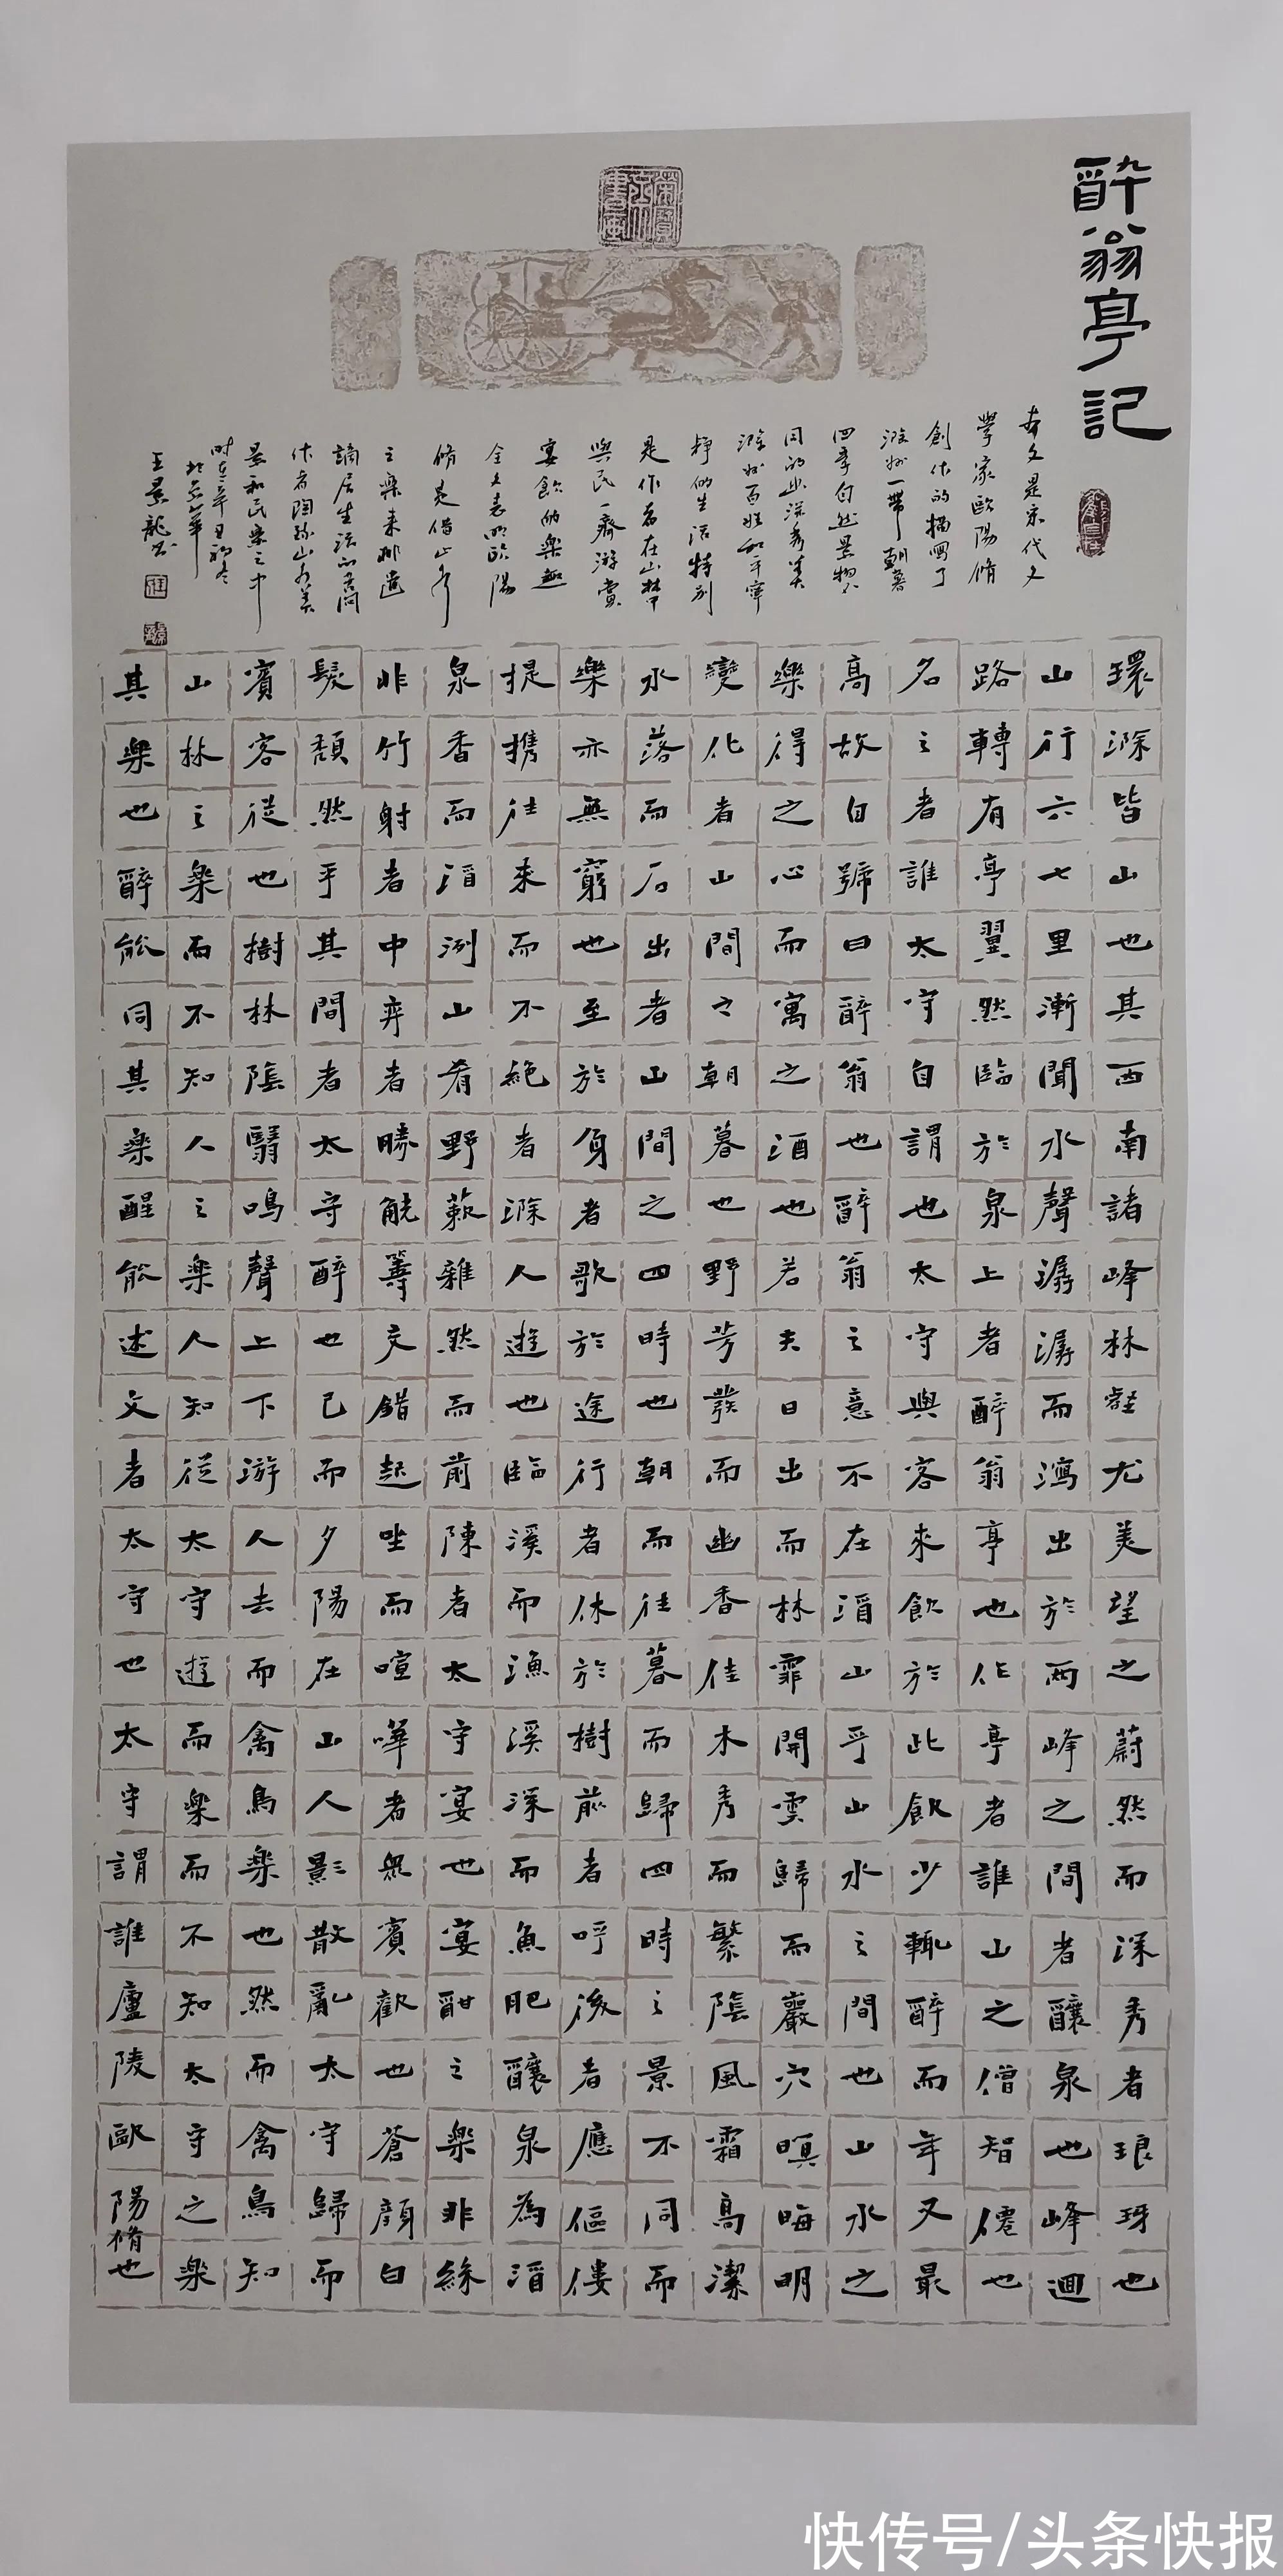 醉翁亭記
本文是宋代文
學家歐陽脩
創作的描寫了
滁州一帶朝暮
四季自然景物不
同的幽深秀美
滁州百姓和平寧
靜的生活特别
是作者在山林中
與民一齊游賞
宴飲的樂趣
全文表明歐陽
脩是借山水
之樂來排遣
謫居生活的苦悶
作者陶 山水美
景和民樂之中
時在辛丑初冬
於京華
王景龍書
環滁皆山也其西南諸峰林壑尤美望之蔚然而深秀者琅玡也
山行六七里漸聞水聲潺潺而瀉出於兩峰之間者釀泉也峰迴
路轉有亭翼然臨於泉上者醉翁亭也作亭者誰山之僧智僊也
名之者誰太守自謂也太守與客來飲於此飲少輒醉而年又最
高故自號曰醉翁也醉翁之意不在酒山乎山水之間也山水之
樂得之心而寓之酒也若夫日出而林霏開雲歸而巖穴暝晦明
變化者山間之朝暮也野芳發而幽香佳木秀而繁陰風霜高潔
水落而石出者山間之四時也朝而往暮而歸四時之景不同而
樂亦無窮也至於負者歌於途行者休於樹前者呼後者應傴僂
提攜往來而不絕者滁人遊也臨溪而漁溪深而魚肥釀泉為酒
泉香而酒洌山肴野蔌雜然而前陳者太守宴也宴酣之樂非絲
非竹射者中弈者勝觥籌交錯起坐而喧嘩者無賓歡也蒼顏白
髮頹然乎其間者太守醉也已而夕陽在山人影散亂太守歸而
賓客從也樹林陰翳鳴聲上下游人去而禽鳥樂也然而禽鳥知
山林之樂而不知人之樂人知從太守遊而樂而不知太守之樂
其樂也醉能同其樂醒能述文者太守也太守謂誰廬陵歐陽脩也
快传号/头条快报